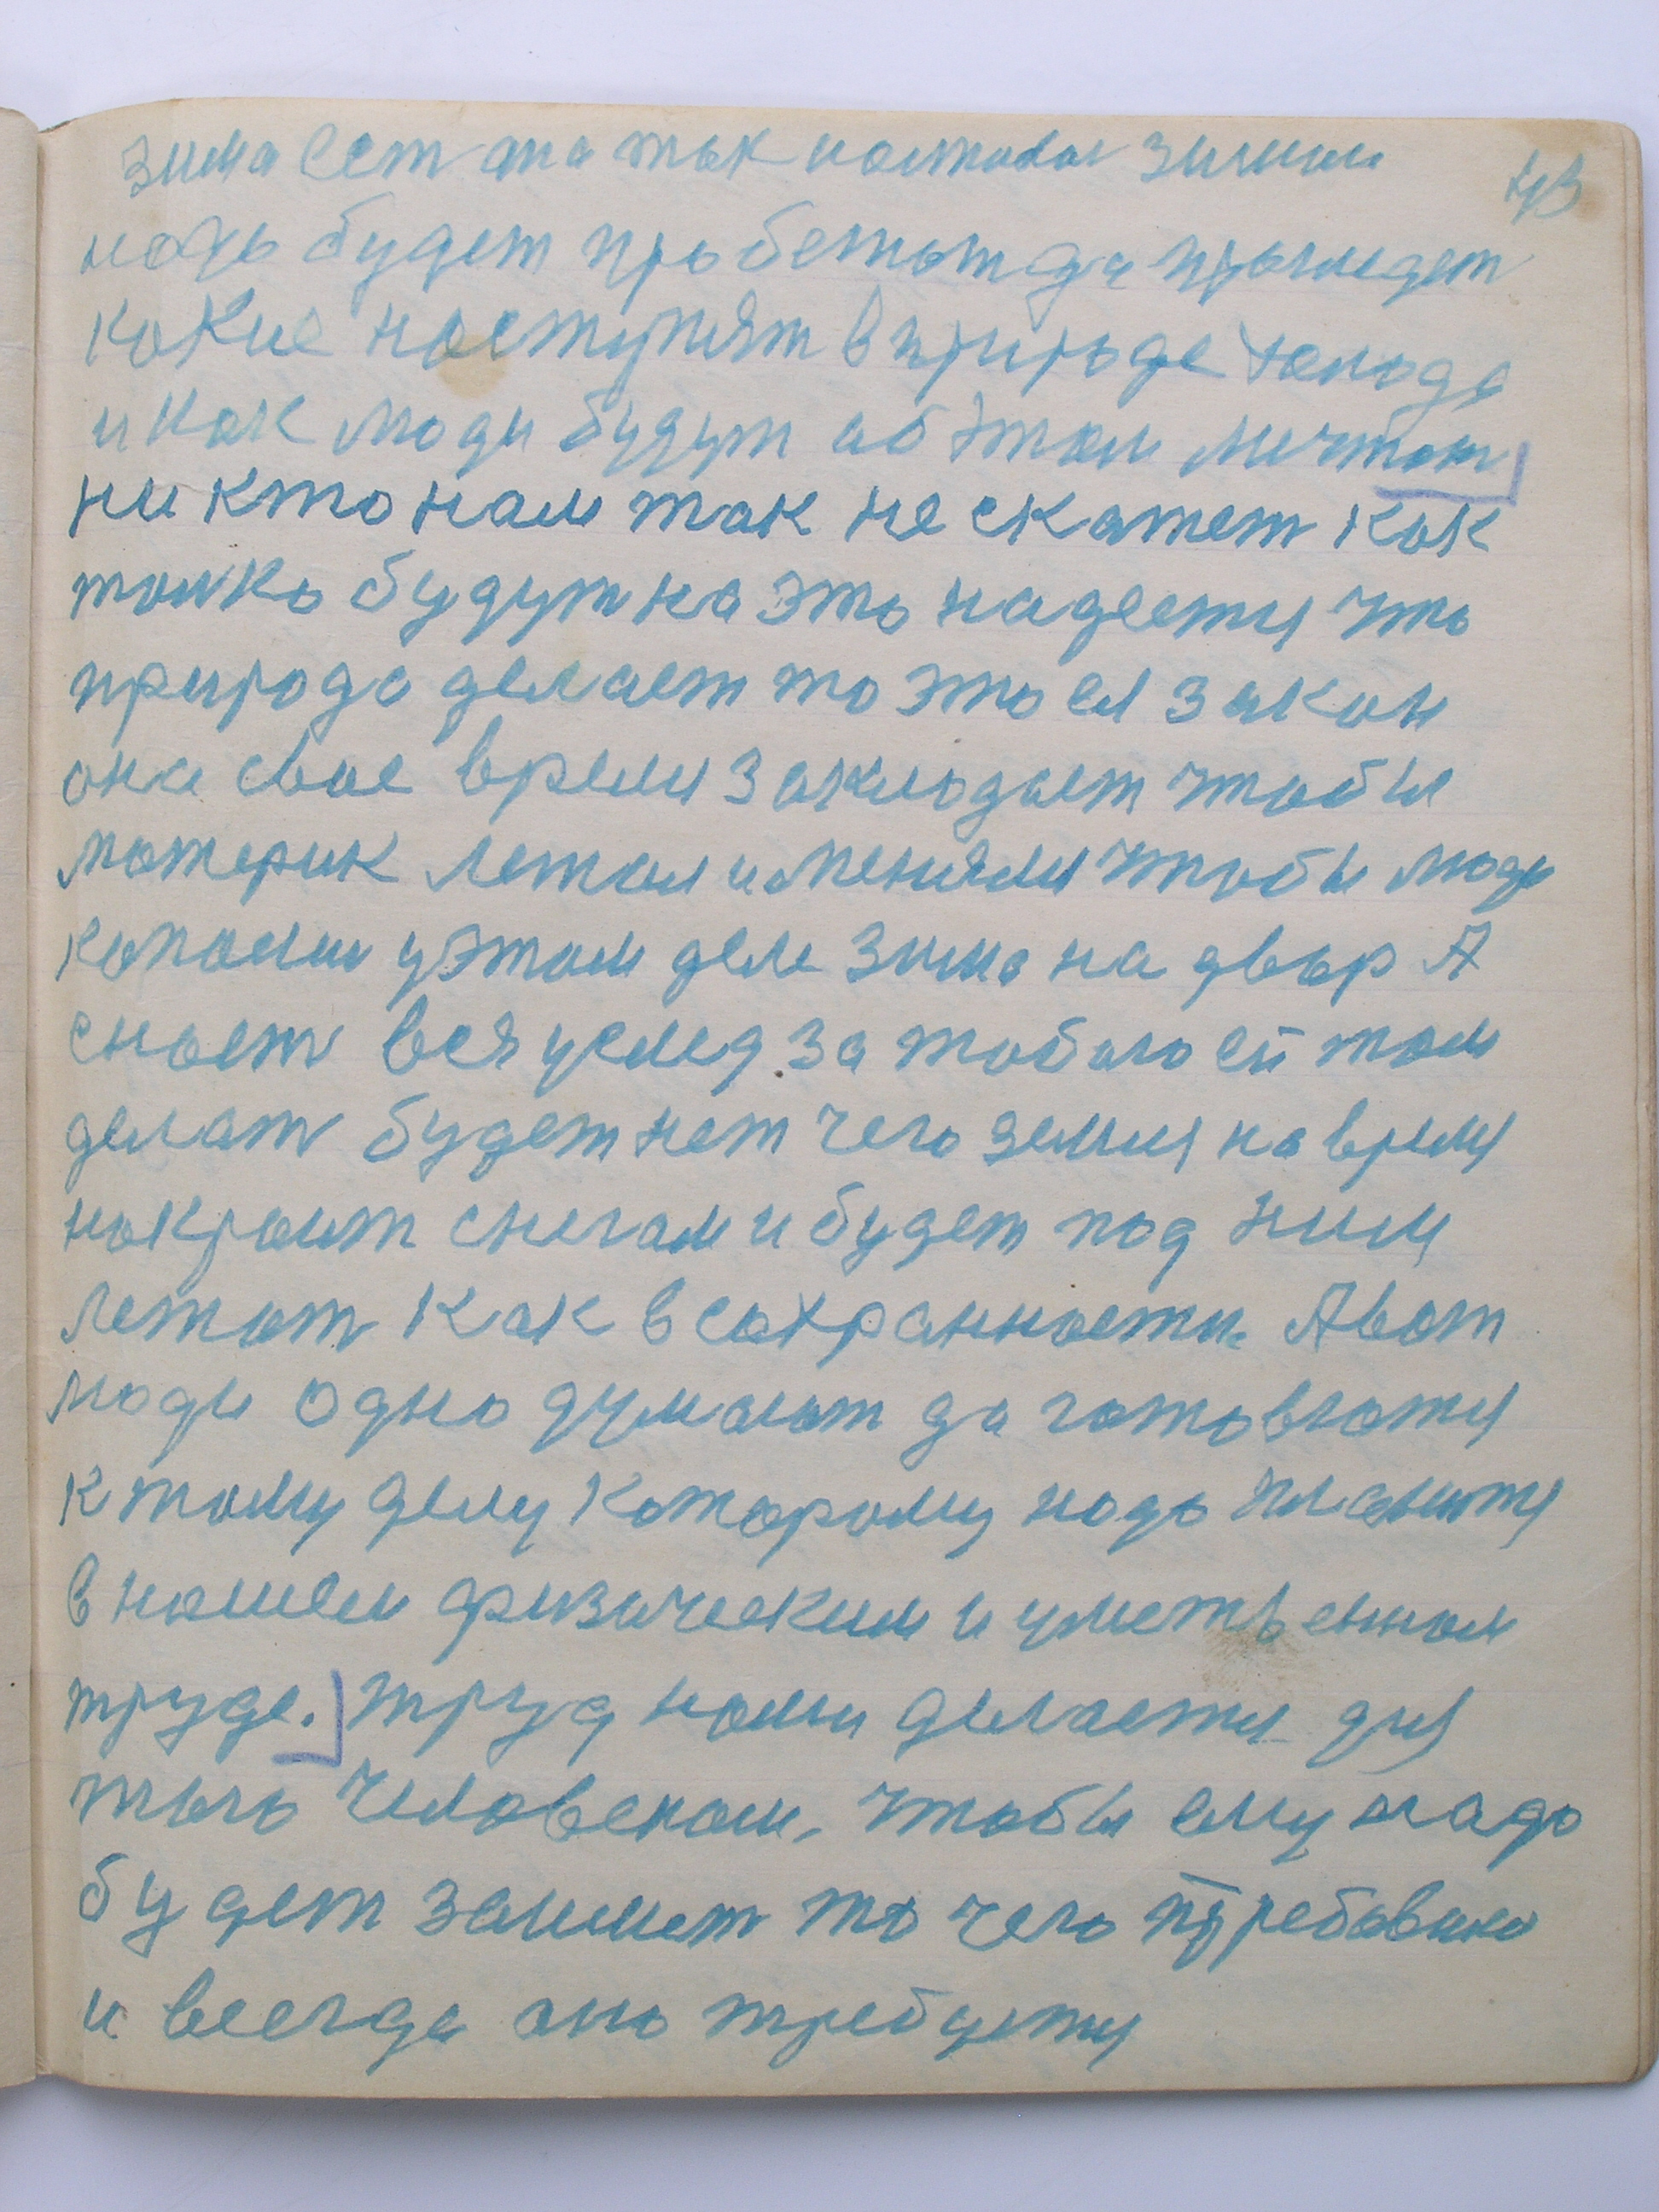 43
зима ест та так настовая зимой
надо будет пробежатда прыгиедет
какие наступят в природе холода
и как люди будут аб этом мичтат
ни кто нам так не скажет как
толко будут на это надеетця что
природа делает то это ея закон
она свое время закладует чтобы
материк лежал именяли чтобы люди
копалии у этом деле зима на двор А
снает вся услед за тобаю ей там
делат будет нет чего земля на время
накроит снегам и будет под ним
лежат как в сохранности. А вот
люди одно думают да готовлютця
к тому делу катораму надо явитця
в нашем физическим и умственнам
труде. труд нами делаетця для
того человеком, чтобы ему надо
будет займет то чего требавано
и всегда оно требуетця